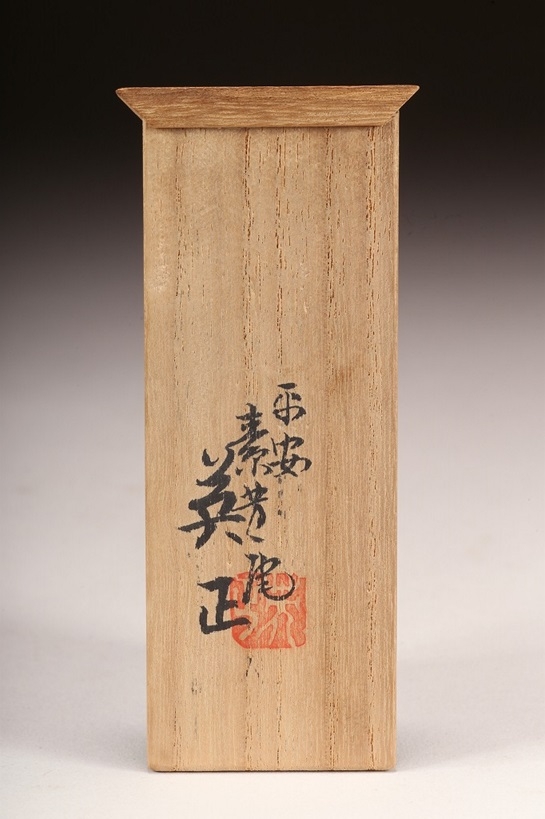 平安
素芳庵
英正